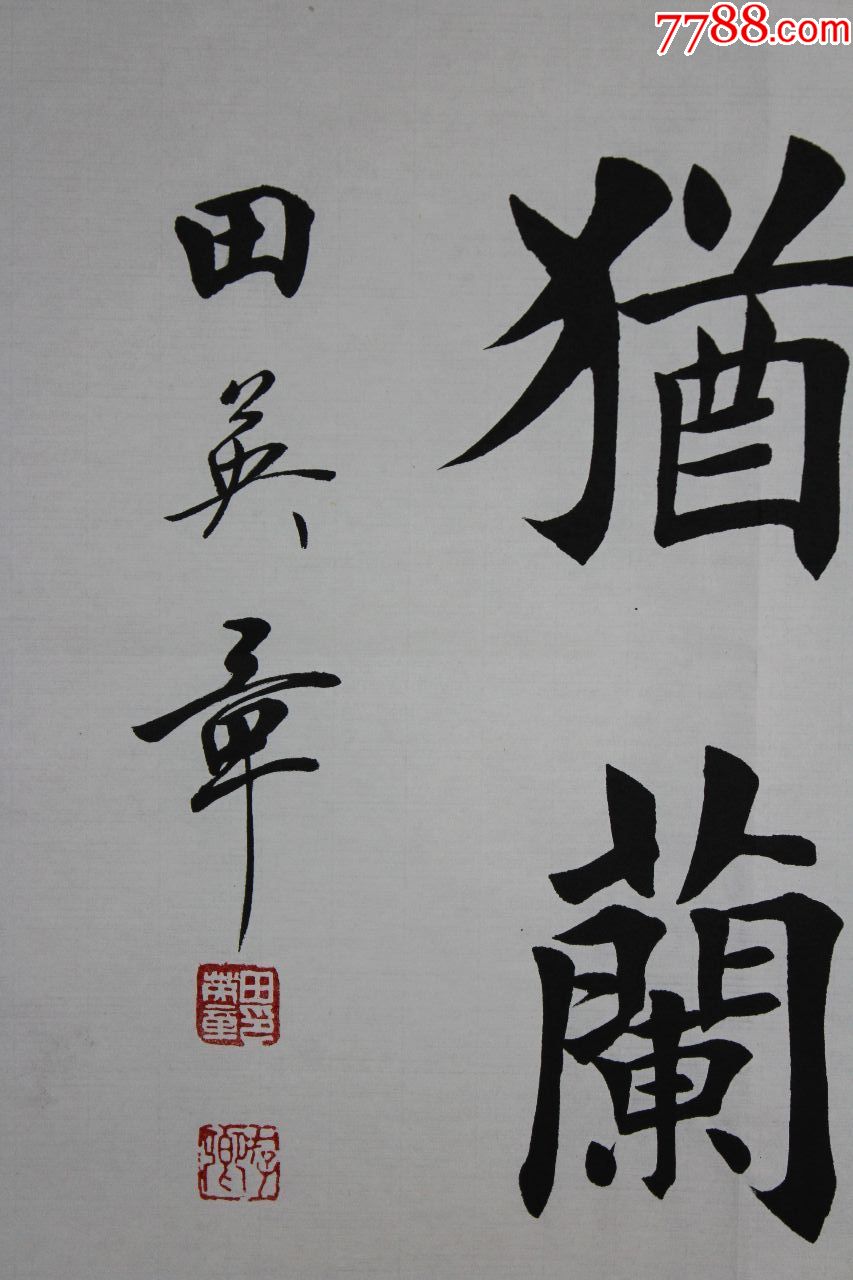 7788.com
猶蘭
田英章